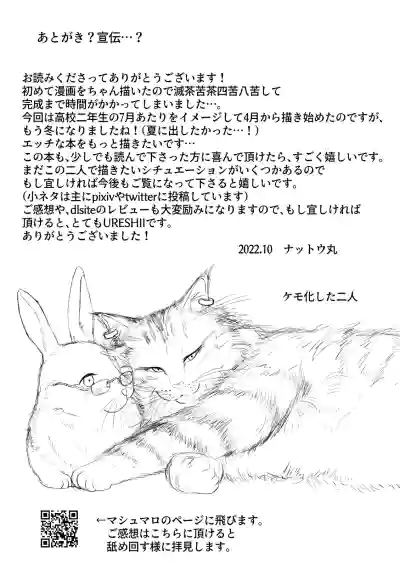 あとがき？宣伝…？
お読みくださってありがとうございます！
初めて漫画をちゃん描いたので滅茶苦茶四苦八苦して
完成まで時間がかかってしまいました…。
今回は高校二年生の7月あたりをイメージして4月から描き始めたのですが、
もう冬になりましたね！(夏に出したかった…！)
エッチな本をもっと描きたいです…
この本も、少しでも読んで下さった方に喜んで頂けたら、すごく嬉しいです。
まだこの二人で描きたいシチュエーションがいくつかあるので
もし宜しければ今後もご覧になって下さると嬉しいです。
(小ネタは主にpixivやtwitterに投稿しています)
ご感想や、dlsiteのレビューも大変励みになりますので、もし宜しければ
頂けると、とてもURESHIIです。
ありがとうございました！
2022.10　ナットウ丸
ケモ化した二人
←マシュマロのページに飛びます。
ご感想はこちらに頂けると
舐め回す様に拝見します。